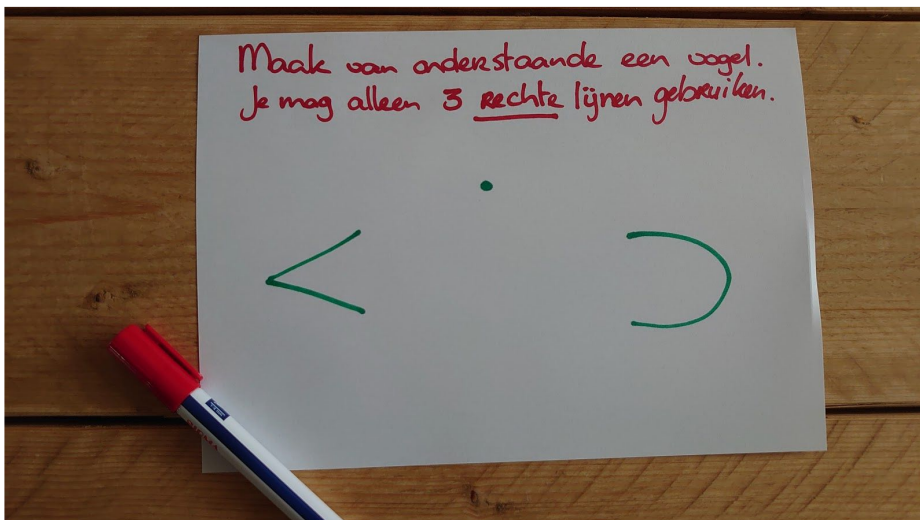 Maak van onderstaande een vogel.
Je mag alleen 3 rechte lijnen gebruiken.